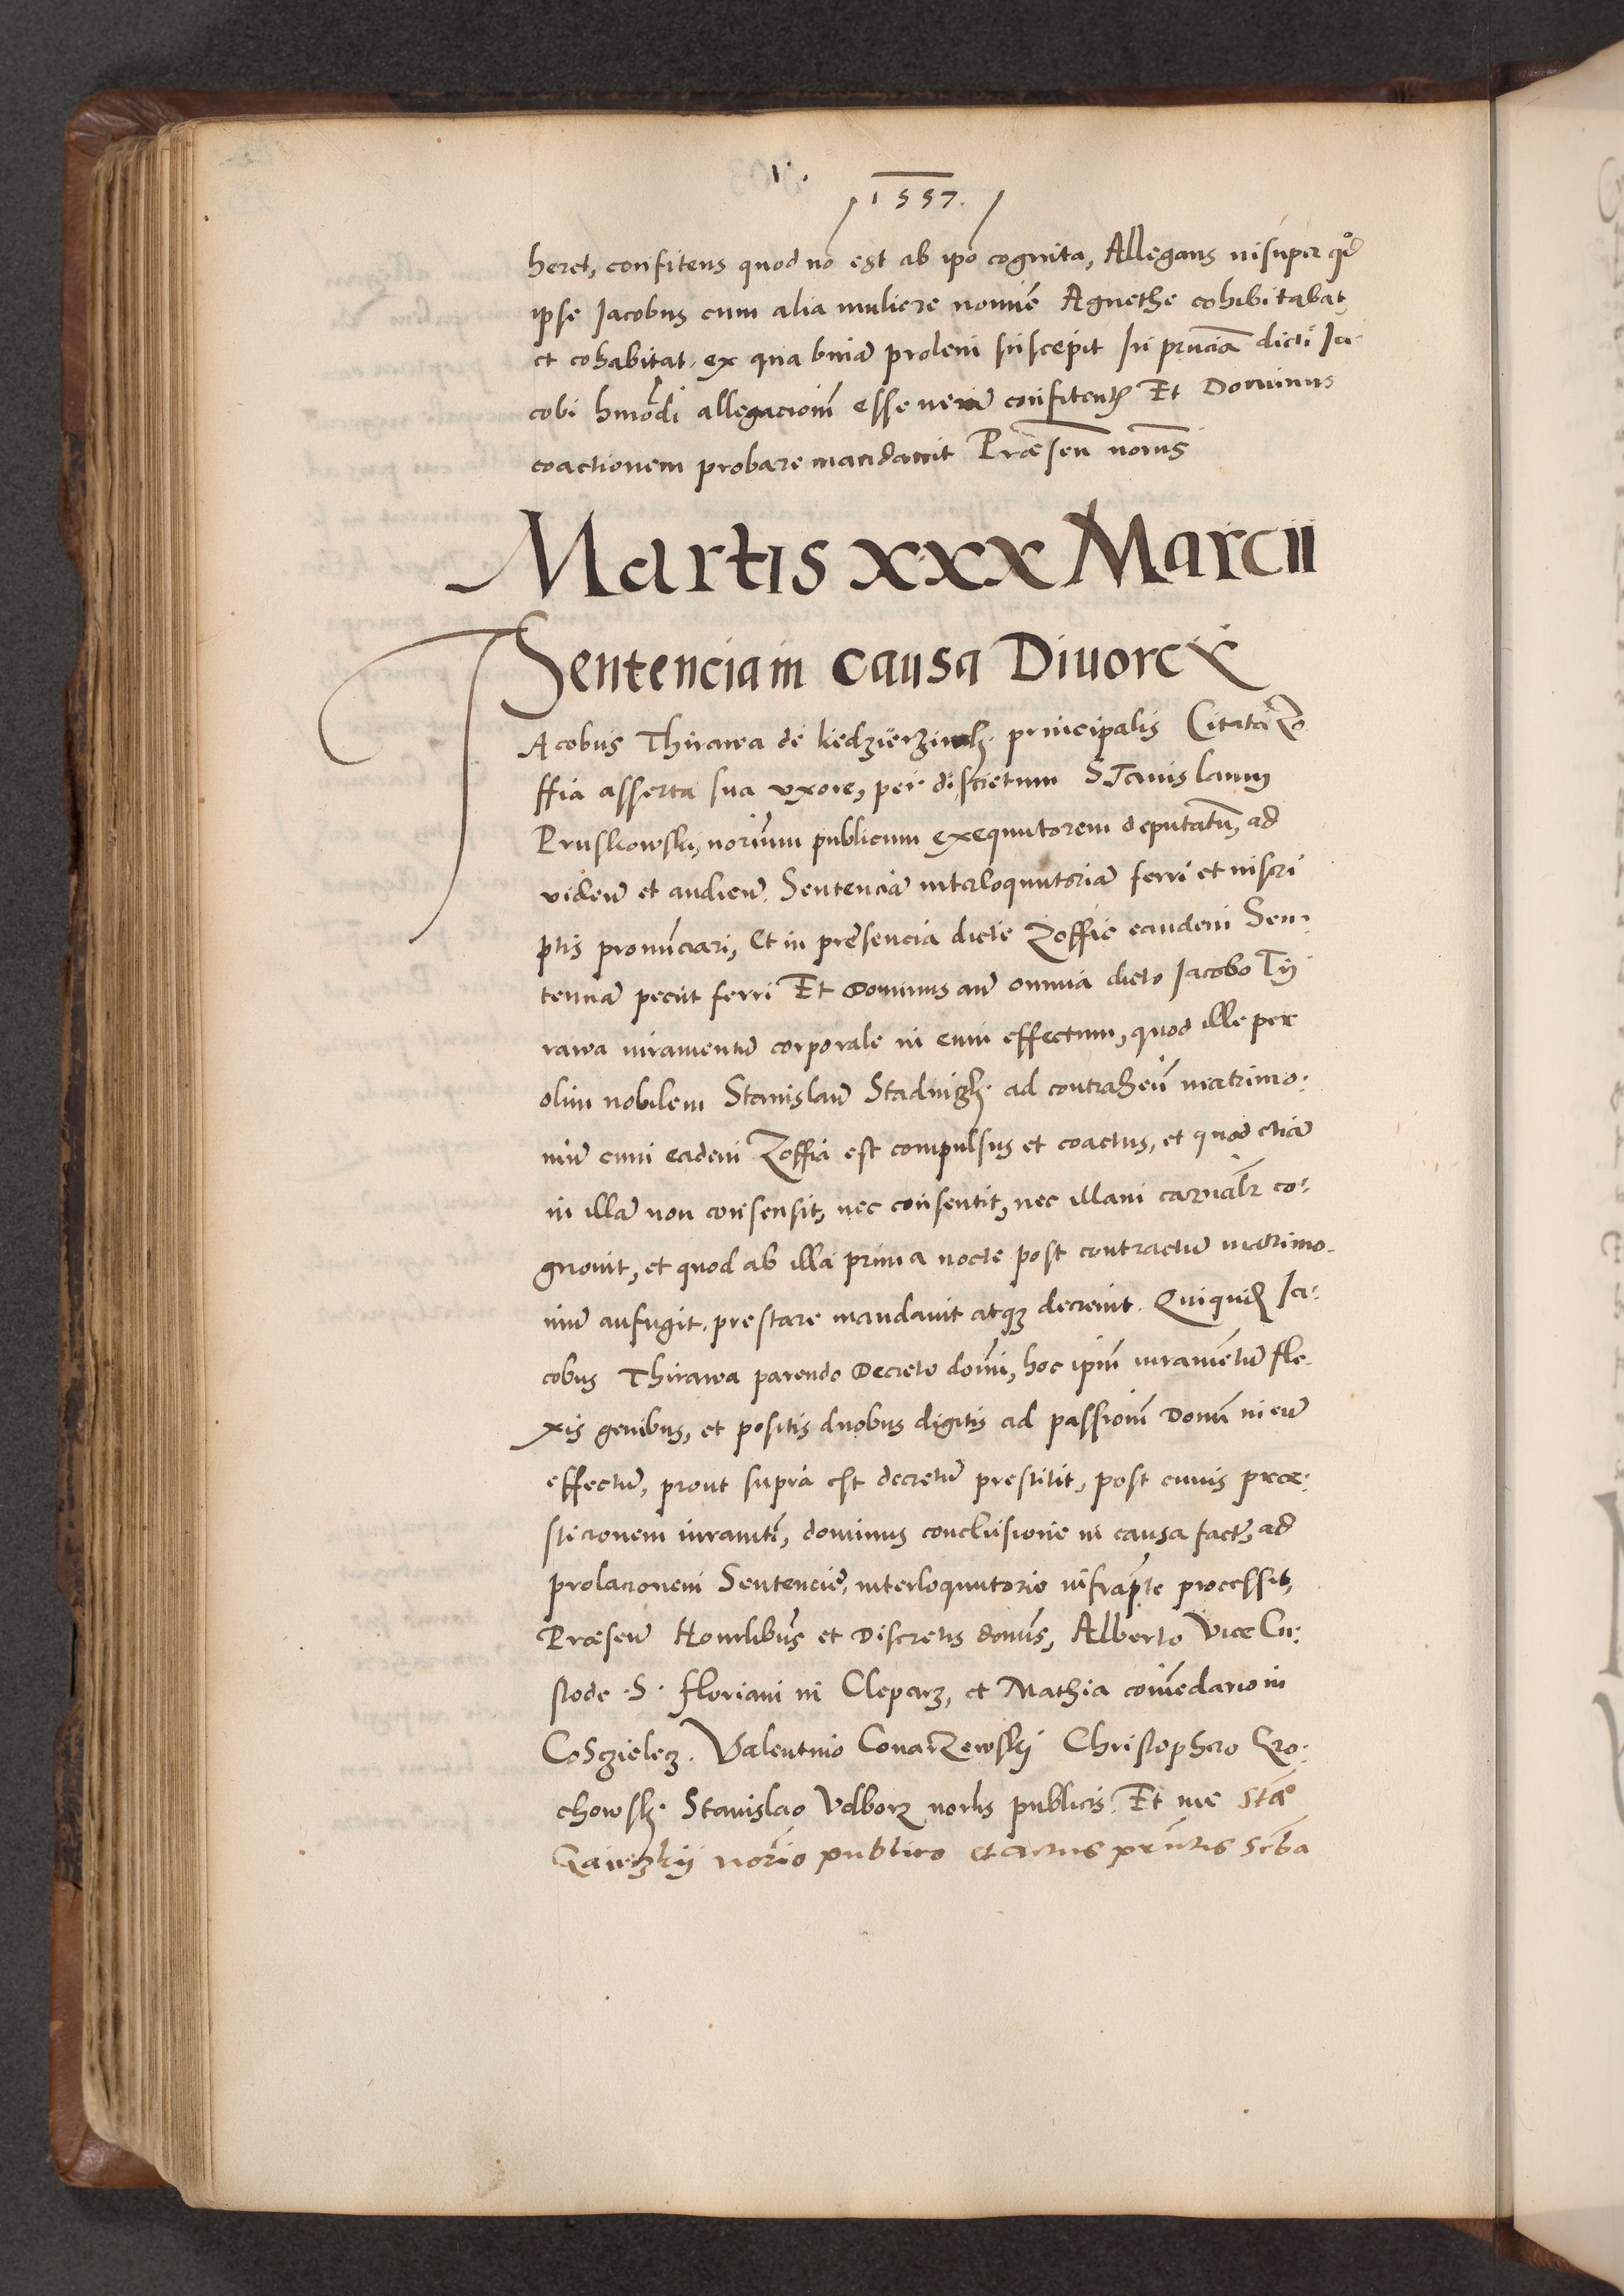 1557.
heret, confitens quod nō est ab ipō cognita, Allegans insuper qd
ipse Jacobus cum alia muliere nomīe Agnethe cohibitabat,
et cohabitat, ex qua binā prolem suscepit In pñciā dicti Ja-
cobi hmōdi allegacionē esse verā confitentꝭ Et Dominus
coactionem probare mandauit Præsen notīis
Martis xxx Marcii
Sentencia in causa Divorcÿ
JAcobus Thirawa de Kiedzierzinꝭ principalis Citata Zo
ffia asserta sua vxore, per discretum STanislaum
Pruskowski, norium publicum exequutorem deputatū, ad
videnū et audienū. Sentenciā interloquutoriā ferri et inscri
ptis pronunciari, Et in presencia dicte Zoffie eandem Sen-
tenciā peciit ferri Et Dominus añ omnia dicto Jacobo Tÿ
rawa iuramentū corporale in eum effectum, quod ille per
olim nobilem Stanislaū Stadnizkꝭ ad contrahenū matrimo-
niū cum eadem Zoffia est compulsus et coactus, et quod etiā
in illā non consensit, nec consentit, nec illam carnalr̃ co-
gnouit, et quod ab illa prima nocte post contractū matrimo-
niū aufugit, prestare mandauit atqꝫ decreuit. Quiquid̃ Ja-
cobus Thirawa parendo Decreto domī, hoc ipm̃ iuramentū fle-
xis genibus, et positis duobus digitis ad passionē Domī in eū
effectū, prout supra est decretū prestitit, post cuius præ-
sticionem iuramtī, dominus conclusione in causa facta, ad
prolacionem Sentencie, interloquutorie infrapte processit,
Præsenū Honrlibus et Discretis domīs, Alberto Vice Cu-
stode .S. floriani in Cleparz, et Mathia comēdario in
CoSczielecz. Valentino Conarzewskÿ Christophero Gro-
chowskꝭ Stanislao Vdborz noriis publicis. Et me Stāo
norio publico et actus pñtis scba